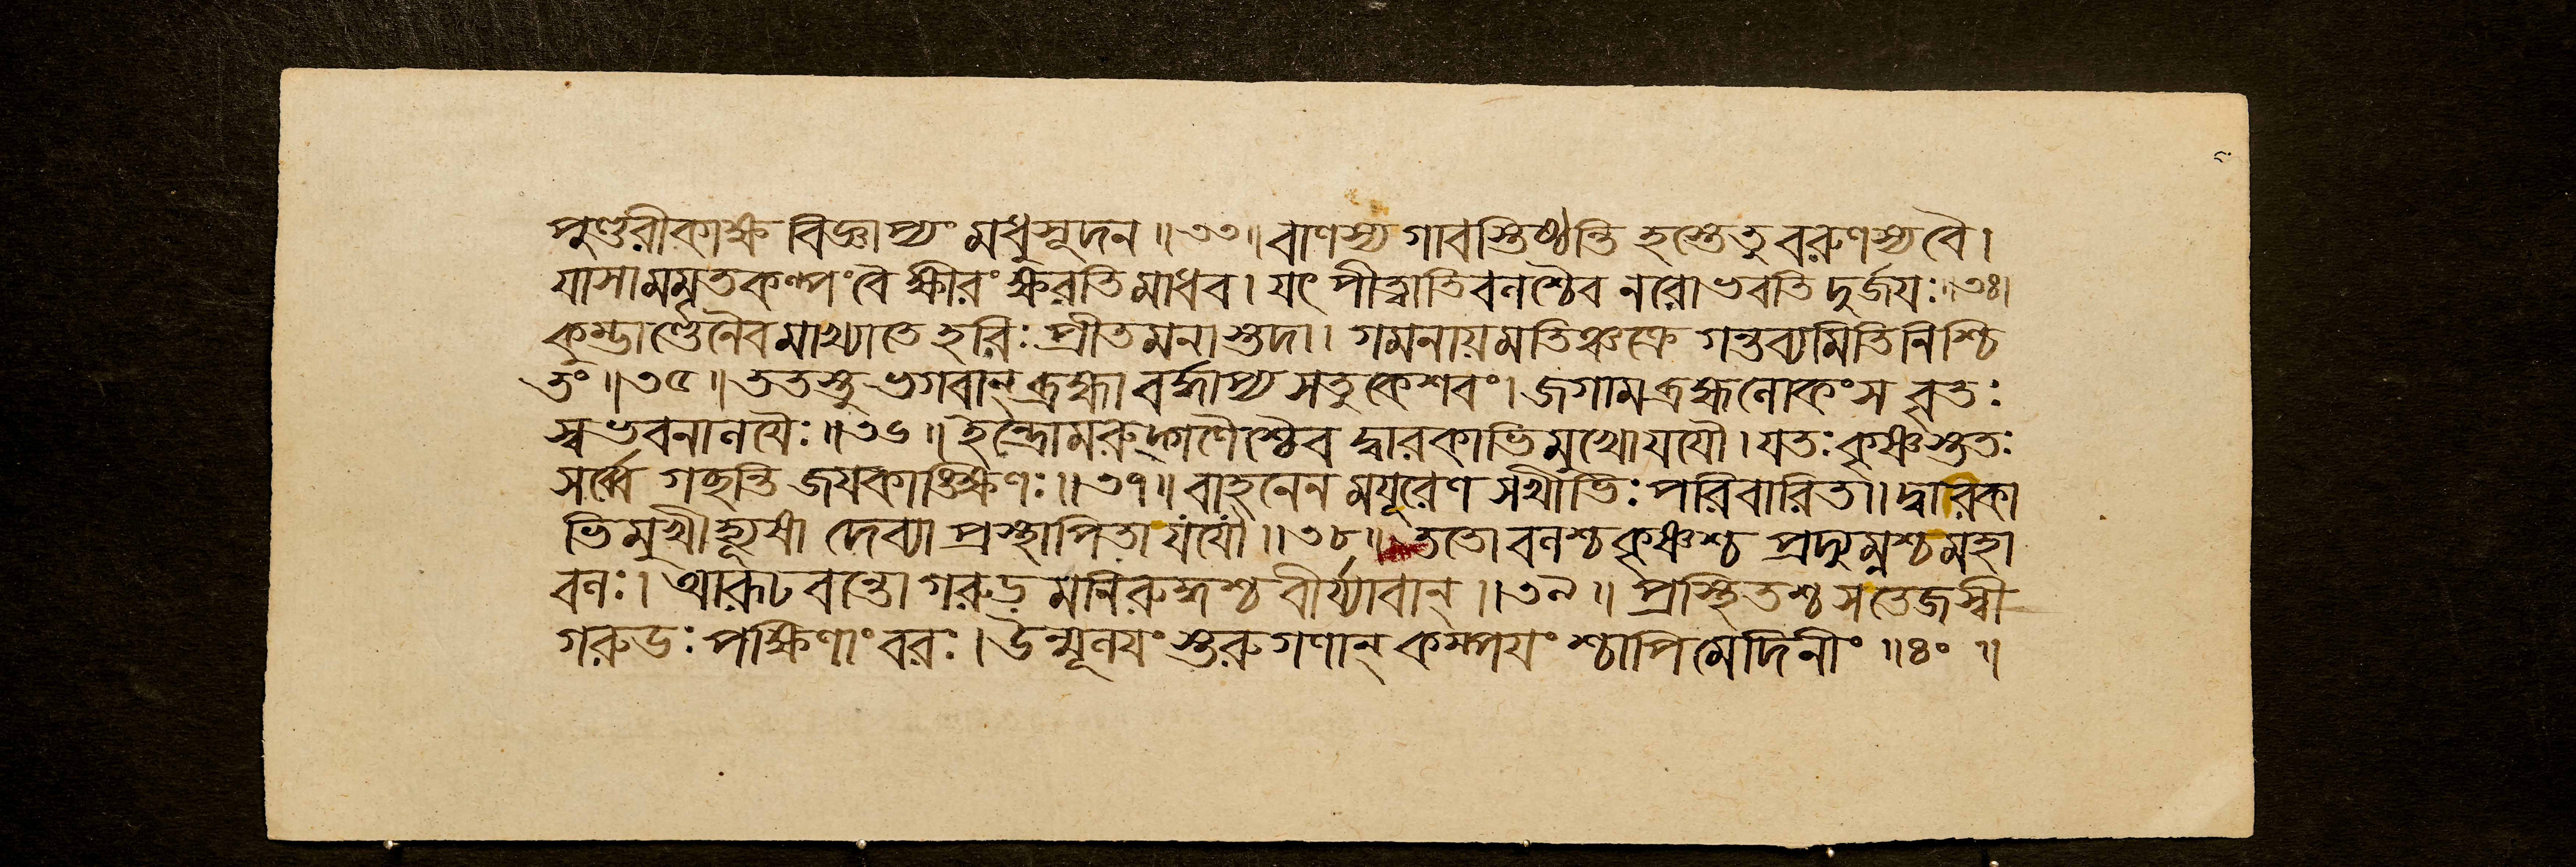 পুণ্ডরীকাক্ষ বিজ্ঞাপ্যং মধুসূদন ॥৩৩॥ বাণস্য গাবস্তিষ্ঠন্তি হস্তেতু বরুণস্য বৈ।
যাসামমৃতকল্পং বৈ ক্ষীরং ক্ষরতি মাধব। যৎ পীত্বাতিবলশ্চৈব নরো ভবতি দুর্জয়ঃ॥৩৪।
কুম্ভাণ্ডেনৈবমাখ্যাতে হরিঃ প্রীতমনাস্তদা। গমনায় মতিঞ্চক্রে গন্তব্যমিতি নিশ্চি
তং ॥৩৫॥ ততস্তু ভগবান্ ব্রহ্মা বর্দ্ধাপ্য সতু কেশবং। জগাম ব্রহ্মলোকং স বৃতঃ
স্বভবনালয়ৈঃ ॥৩৬॥ ইন্দ্রো মরুদ্গণৈশ্চৈব দ্বারকাভিমুখো যযৌ। যতঃ কৃষ্ণস্ততঃ
সর্ব্বে গচ্ছন্তি জয়কাঙ্ক্ষিণঃ ॥৩৭॥ বাহনেন ময়ূরেণ সখীভিঃ পরিবারিতা। দ্বারিকা
ভিমুখী হ্যূষা দেব্যা প্রস্থাপিতা যযৌ ॥৩৮॥ ততো বলশ্চ কৃষ্ণশ্চ প্রদ্যুম্নশ্চ মহা
বলঃ। আরূঢবন্তো গরুড়মনিরুদ্ধশ্চ বীর্য্যবান্ ॥৩৯॥ প্রস্থিতশ্চ স তেজস্বী
গরুডঃ পক্ষিণাং বরঃ। উন্মূলয়ংস্তরুগণান্ কম্পয়ংশ্চাপি মেদিনীং ॥৪০॥